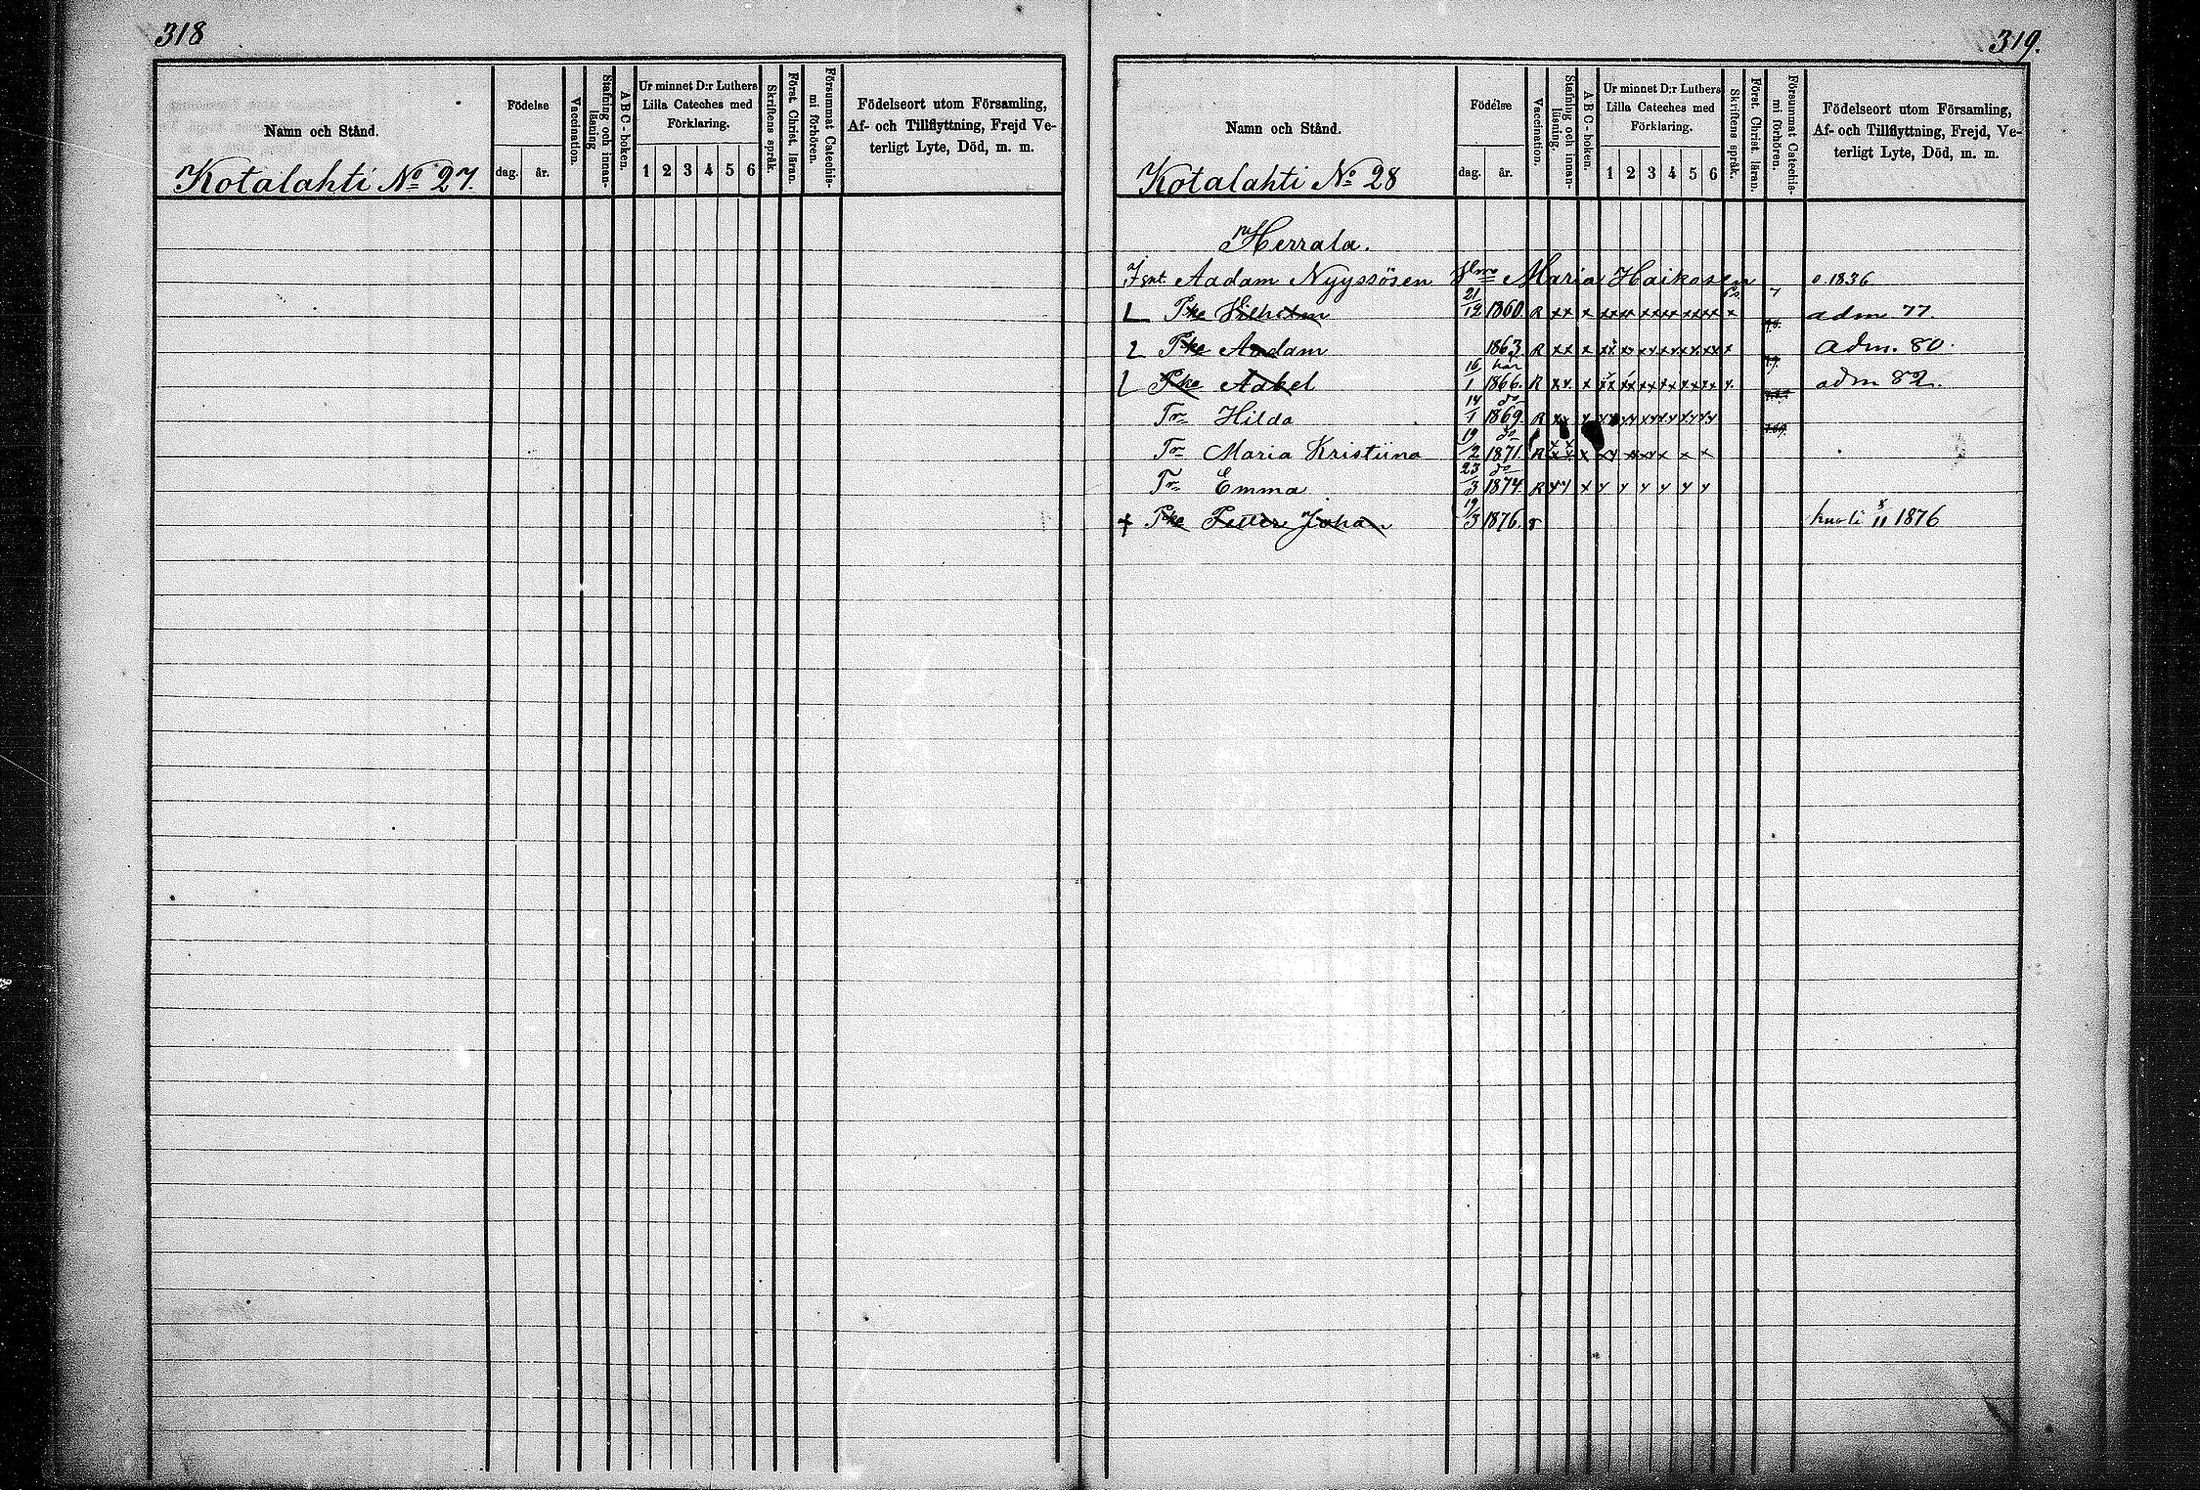 318
Namn och Stånd.
Kotalahti No 27.
Födelse
dag. år.
Vaccination.
Stafning och innan-läsning
ABC-boken.
Ur minnet D:r Luthers
Lilla Cateches med
Förklaring.
1 2 3 4 5 6
Skriftens språk.
Först. Christ. läran.
Försummat Catechis-mi förhören.
Födelseort utom Församling,
Af- och Tillflyttning, Frejd Ve-
terligt Lyte, Död, m. m.
319.
Namn och Stånd.
Kotalahti No 28
Födelse
dag. år.
Vaccination.
Stafning och innan-läsning.
ABC-boken.
Ur minnet D:r Luthers
Lilla Cateches med
Förklaring.
1 2 3 4 5 6
Skriftens språk.
Först. Christ. läran.
Försummat Catechis-mi förhören.
Födelseort utom Församling,
Af- och Tillflyttning, Frejd, Ve-
terligt Lyte, Död, m. m.
Herrala.
Aadam Nyyssösen Maria Haikosen o. 1836
L Pka Vilhelm 21/12 1860. R xx x xx xx xx xx xx xx x adm 77.
2 Pka Aadam 1863 R xx x xx xx xx xx xx xx x adm. 80.
L Pka Aabel 16/1 1866. R xx x xx xx xx xx xx xx x adm 82.
Tr Hilda 14/1 1869. R xx x xx xx xx xx xx xx
Tr Maria Kristiina 19/2 1871. R xx x xx xx xx x x x
Tr Emma 23/3 1874 R xx x x x x x x x
+ Pka Petter Johan 17/3 1876. r kuoli 8/11 1876